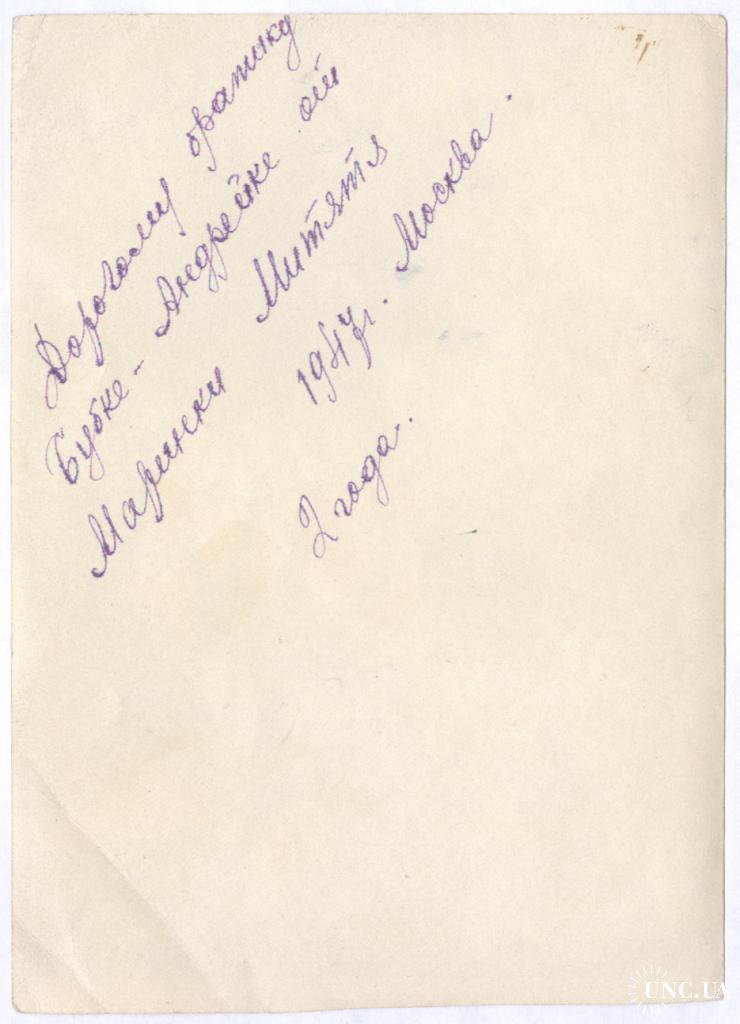 Дорогому братику
Бубке - Андрейке от
Маринки Митятя
1947г. Москва.
2 года.
UNC.UA